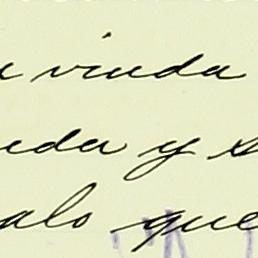 viuda
eda y s
alo que